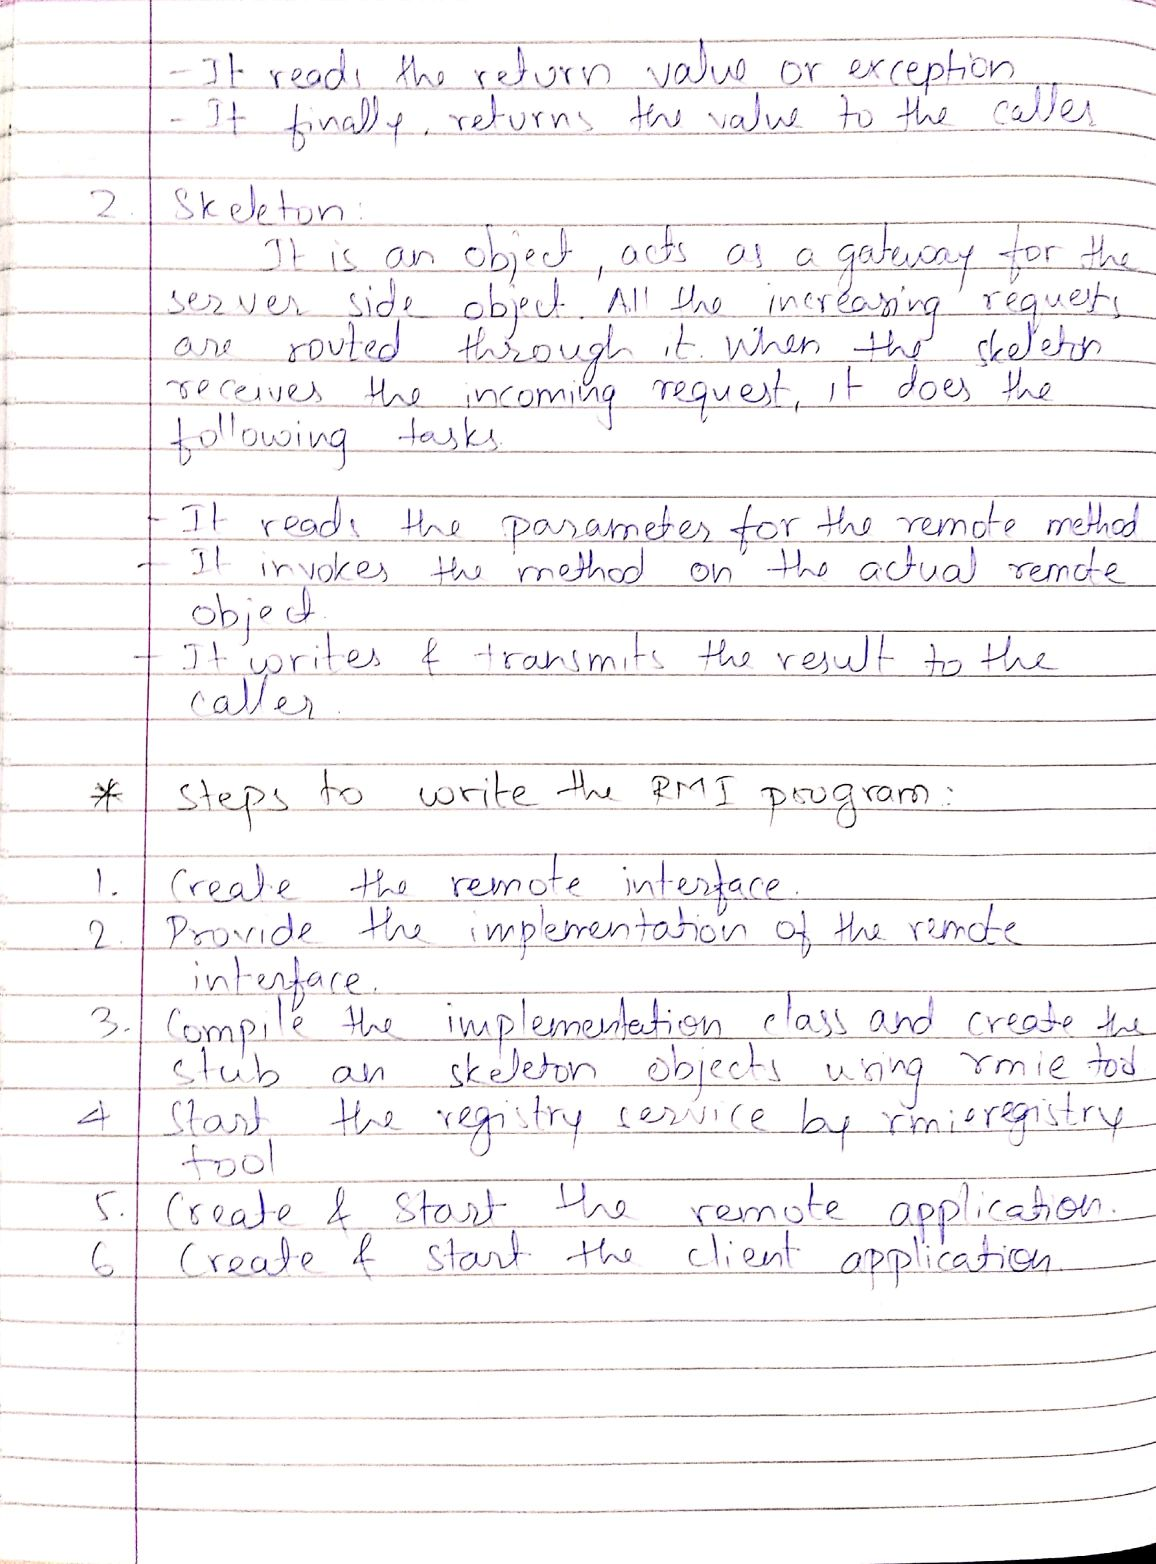 - It reads the return value or exception
- It finally, returns the value to the caller
2. Skeleton:
It is an object, acts as a gateway for the
server side object. All the increasing requests
are routed through it. When the skeleton
receives the incoming request, it does the
following tasks.
- It reads the parameter for the remote method
- It invokes the method on the actual remote
object.
- It writes & transmits the result to the
caller.
* Steps to write the RMI program:
1. Create the remote interface.
2. Provide the implementation of the remote
interface.
3. Compile the implementation class and create the
stub an skeleton objects using rmie tool
4 Start the registry service by rmieregistry
tool
5. Create & Start the remote application.
6 Create & start the client application